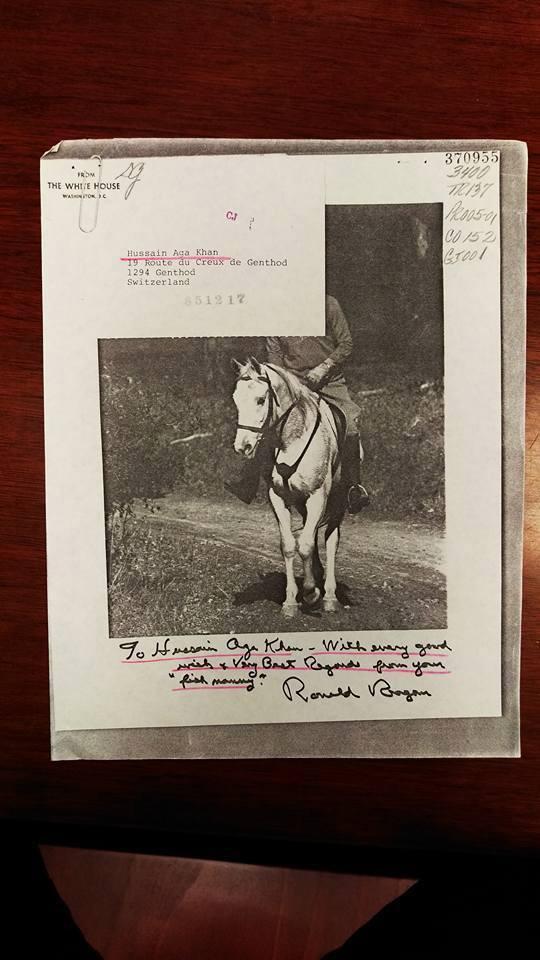 FROM
THE WHITE HOUSE
WASHINGTON, D.C.
370955
3400
TR137
PR005-01
CO 152
GI001
Hussain Aga Khan
19 Route du Creux de Genthod
1294 Genthod
Switzerland
851217
To Hussain Aga Khan – With every good
wish & Very Best Regards from your
"fish nanny."
Ronald Reagan